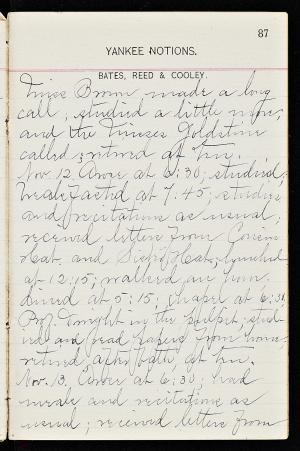 87
YANKEE NOTIONS.
BATES, REED & COOLEY.
Miss Brown made a long
call; studied a little more,
and the Misses Goldstein
called; retired at ten.
Nov. 12, Arose at 6:30; studied;
breakfasted at 7:45; studies
and recitations as usual;
received letters from Cousin
and lunched
at 12:15; walked an hour.
dined at 5:15; chapel at 6:30,
Prof. Dwight in the pulpit, stud-
ied and read papers from home;
retired after bath, at ten.
Nov. 13, Arose at 6:30; had
meals and recitations as
usual; received letters from